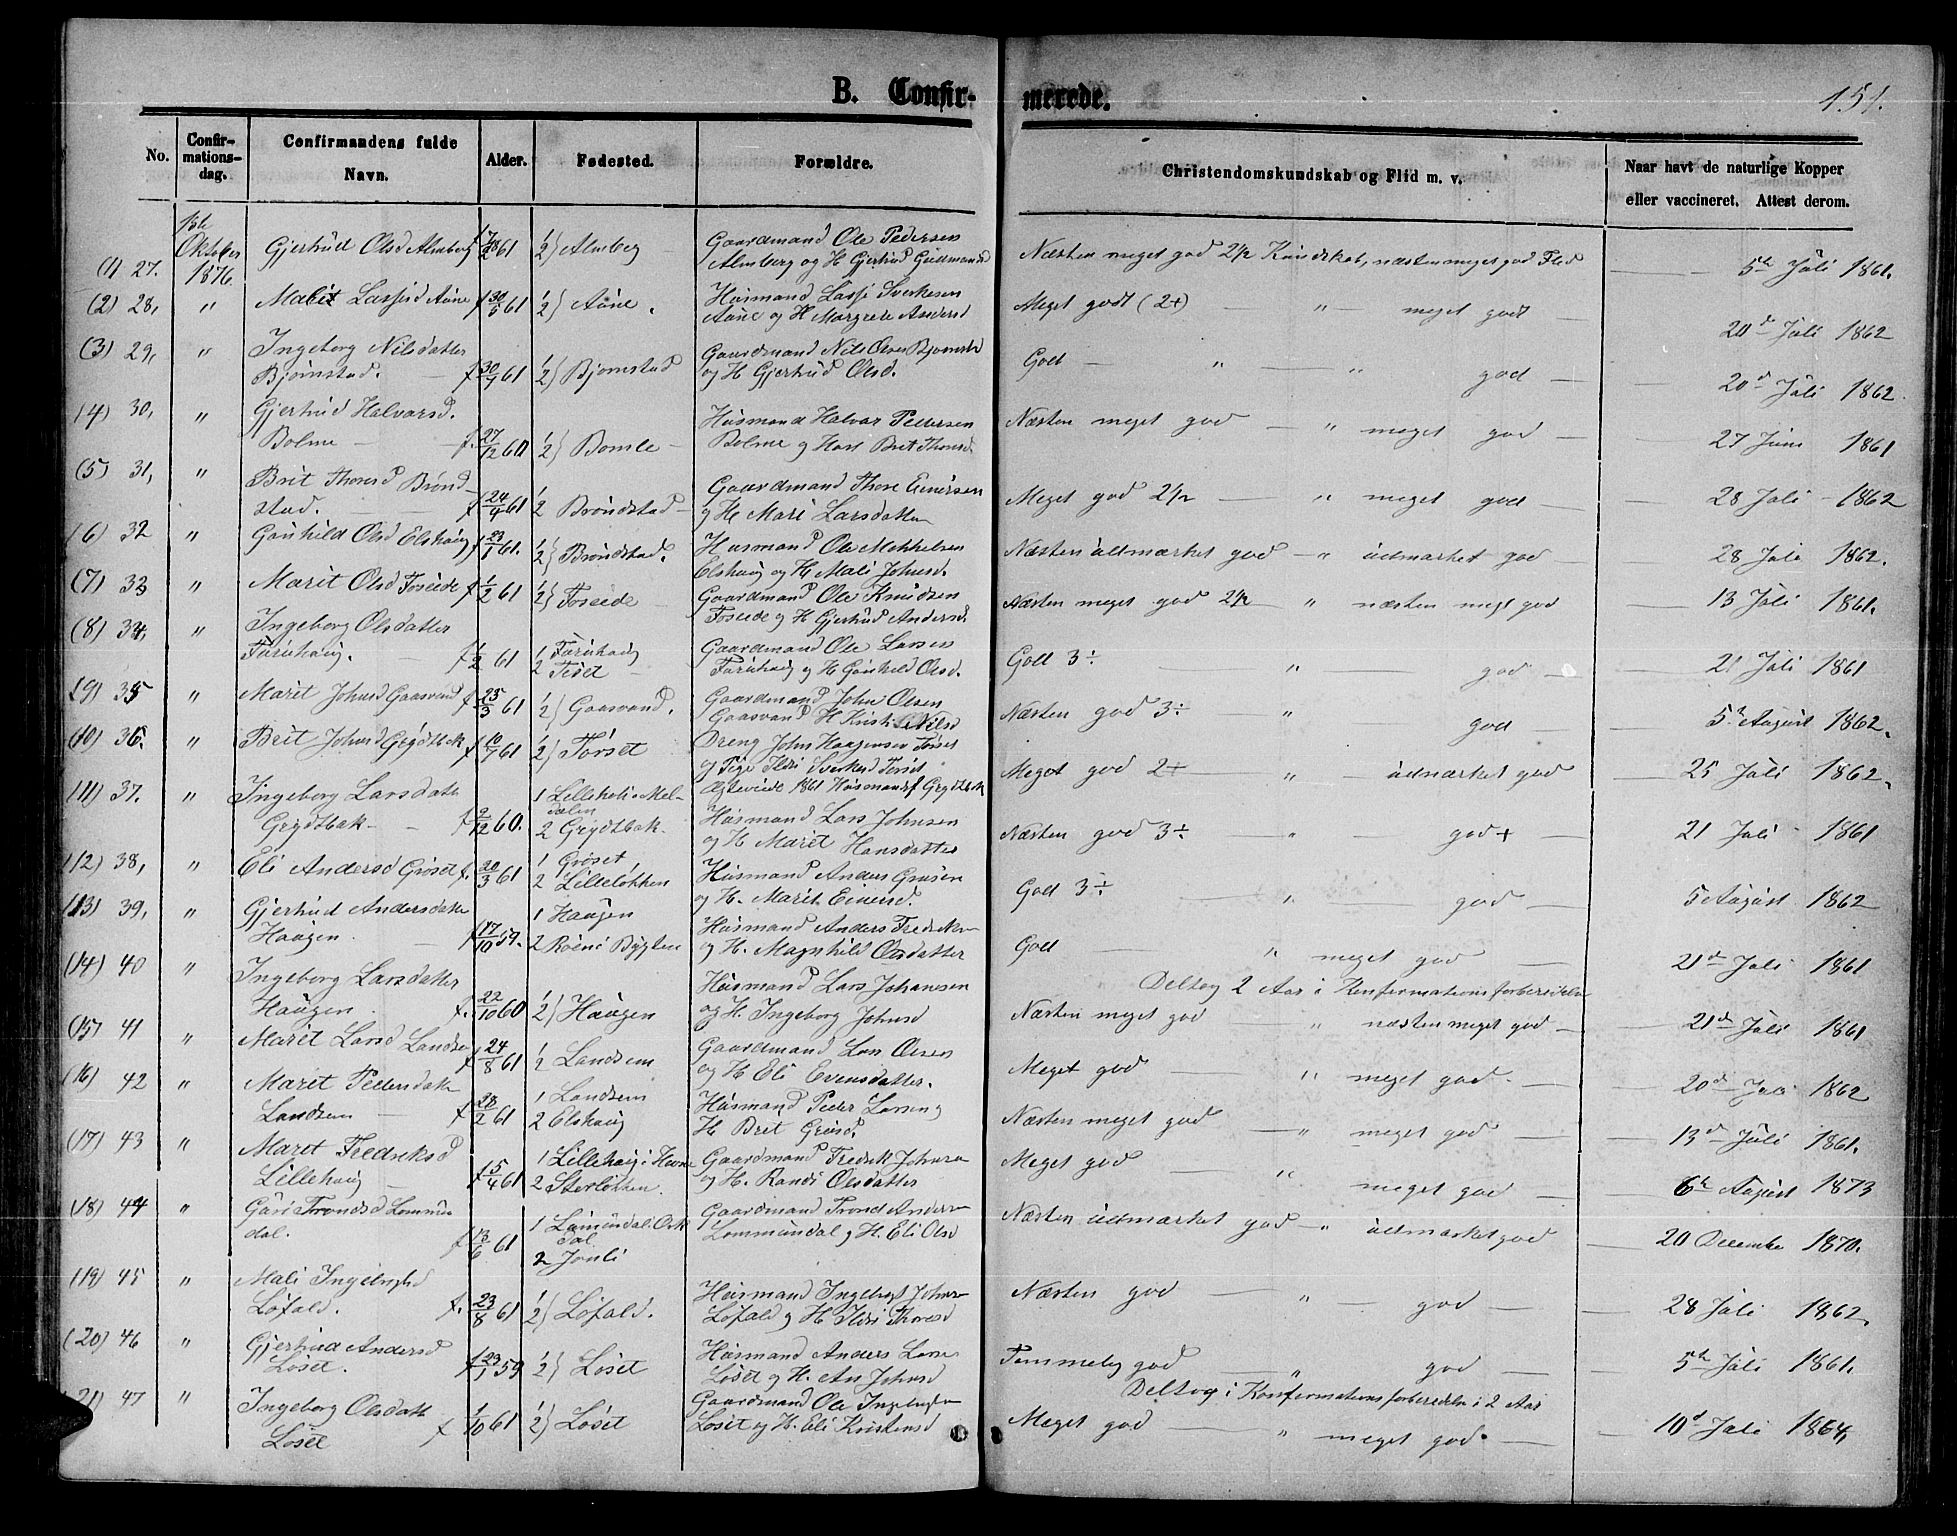 B. Confir- merede.
151.
No.
Confir-
mations-
dag.
Confirmandens fulde
Navn.
Alder.
Fødested.
Forældre.
Christendomskundskab og Flid m. v.
Naar havt de naturlige Kopper
eller vaccineret. Attest derom.
Oktober
1876.
(1) 27. Gjertrud Olsd Almberg 61 1/2) Almberg Gaardmand Ole Pedersen
Almberg og H Gjertrud Gudmundsd
Næsten meget god 2 1/2 Kundskab, næsten meget god Flid 5te Juli 1861.
(2) 28, " Marit Larsisd Aune f 30/5 61 1/2) Aune. Husmand Larsi Sverkesen
Aune og H Margrete Andersd
Meget godt (2+) " meget godt 20de Juli 1862
(3) 29, " Ingeborg Nilsdatter
Bjørnstad. f 30/7 61 1/2) Bjørnstad Gaardmand Nils Olsen Bjørnstad
og H Gjertrud Olsd.
Godt " " god 20de Juli 1862.
(4) 30, " Gjertrud Halvarsd.
Bolme f. 27/12 60 1/2) Bomle Husmand Halvar Pedersen
Bolme og Hust Brit Thoresd
Næsten meget god " meget god 27 Juni 1861
(5) 31, " Brit Thoresd Brönd-
stad. f 24/4 61 1/2 Bröndstad Gaardmand Thore Einersen
og H Mari Larsdatter
Meget god 2 1/2 " meget god 28 Juli 1862
(6) 32 " Gunhild Olsd Elshaug f 23/1 61. 1/2) Bröndstad. Husmand Ole Mekkelsen
Elshaug og H Mali Johnsd.
Næsten udmærket god " udmærket god 28 Juli 1862.
(7) 33 " Marit Olsd Foseide f 1/2 61 1/2) Foseide Gaardmand Ole Knudsen
Foseide og H Gjertrud Andersd.
Næsten meget god 2 1/2 " næsten meget god 13 Juli 1861.
(8) 34, " Ingeborg Olsdatter
Furuhaug. f 1/2 61 1 Furuhaug
2 Gaardmand Ole Larsen
Furuhaug og H Gunhild Olsd.
Godt 3÷ " god 21 Juli 1861
(9) 35 " Marit Johnsd Gaasvand f 25/3 61 1/2) Gaasvand. Gaardmand John Olsen
Gaasvand H Kirsti Nilsd
Næsten god 3÷ " god 5te August 1862.
(10) 36. " Brit Johnsd Grydtbak f 10/7 61 1/2) Torset Dreng John Haagensen Torset
og Pige Ildri Sverkesd Torset
Ægteviede 1861 Husmandsf Grydtbak
Meget god 2+ " udmærket god 25 Juli 1862.
(11) 37. " Ingeborg Larsdatter
Grydtbak f 2/12 60. 1 Lilleholi i Mel-
dalen
2 Grydtbak. Husmand Lars Johnsen
og H Marit Hansdatter
Næsten god 3÷ " god+ 21 Juli 1861
(12) 38, " Eli Andersd Grøset f. 20/3 61 1 Grøset
2 Lilleløkken Husmand Anders
og H. Marit Einersd.
Godt 3÷ " god 5 August 1862
(13) 39, " Gjertrud Andersdatter
Haugen f 17/10 59. 1 Haugen
2 Husmand Anders Fredriksen
og H. Magnhild Olsdatter
Godt " meget god 21de Juli 1861
Deltog 2 Aar i Konfirmationsforberedelsen
(14) 40 " Ingeborg Larsdatter
Haugen f. 22/10 60 1/2) Haugen Husmand Lars Johansen
og H. Ingeborg Johnsd
Næsten meget god " næsten meget god 21de Juli 1861
(15) 41 " Marit Larsd Landsem f 24/8 61 1/2 Landsem Gaardmand Lars Olsen
og H Eli Evensdatter.
Meget god " meget god. 20de Juli 1862
(16) 42 " Marit Pedersdatter
Landsem f 28/2 61 1 Landsem
2 Elshaug Husmand Peder Larsen og
H. Brit
Næsten meget god " meget god 13de Juli 1861.
(17) 43 " Maret Fredriksd
Lillehaug f 5/4 61 1 Lillehaug i Hevne
2 Storløkken. Gaardmand Fredrik Johnsen
og H. Randi Olsdatter
Meget god " meget god 6te August 1873
(18) 44 " Guri Trondsd Lommun-
dal. f 13/6 61 1 Lomundal i Ork-
dal
2 Jonli Gaardmand Trond Andersen
Lommundal og H. Eli Olsd
Næsten udmærket god " udmærket god 20 December 1870.
(19) 45 " Mali Ingebrigtsd
Løfald. f. 23/8 61 1/2) Løfald. Husmand Ingebrigt Johnsen
Løfald og H Ildri Thoresd
Næsten god " god 28 Juli 1862.
(20) 46 " Gjertrud Andersd
Løset. f 23/1 59 1/2) Løset Husmand Anders Larsen
Løset og H. An Johnsd
Temmelig god " god 5te Juli 1861.
Deltog i Konfirmationsforberedelsen i 2 Aar
(21) 47 " Ingeborg Olsdatter
Løset f 1/10 61 1/2) Løset Gaardmand Ole Ingebrigtsen
Løset og H. Eli Kristensd
Meget god " meget god. 10de Juli 1864,